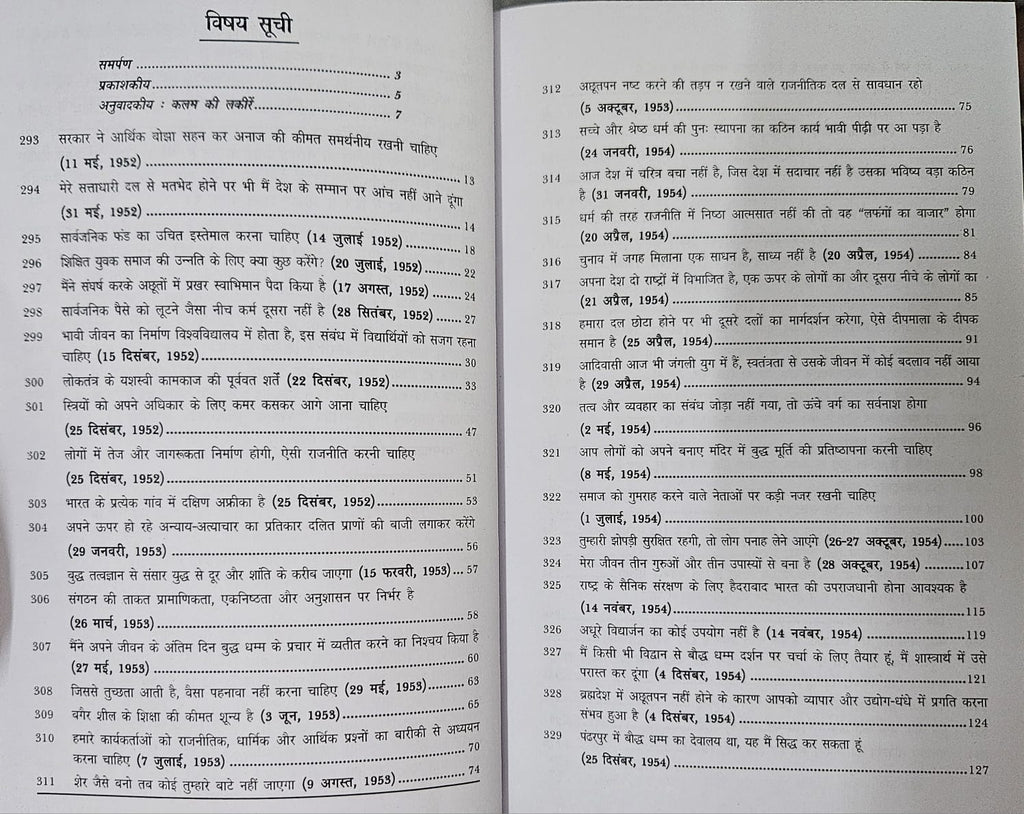 विषय सूची
समर्पण ........ 3
प्रकाशकीय ........ 5
अनुवादकीय : कलम की लकीरें ........ 7
293 सरकार ने आर्थिक बोझा सहन कर अनाज की कीमत समर्थनीय रखनी चाहिए
(11 मई, 1952) ........ 13
294 मेरे सत्ताधारी दल से मतभेद होने पर भी मैं देश के सम्मान पर आंच नहीं आने दूंगा
(31 मई, 1952) ........ 14
295 सार्वजनिक फंड का उचित इस्तेमाल करना चाहिए (14 जुलाई 1952) ........ 18
296 शिक्षित युवक समाज की उन्नति के लिए क्या कुछ करेंगे? (20 जुलाई, 1952) ........ 22
297 मैंने संघर्ष करके अछूतों में प्रखर स्वाभिमान पैदा किया है (17 अगस्त, 1952) ........ 24
298 सार्वजनिक पैसे को लूटने जैसा नीच कर्म दूसरा नहीं है (28 सितंबर, 1952) ........ 27
299 भावी जीवन का निर्माण विश्वविद्यालय में होता है, इस संबंध में विद्यार्थियों को सजग रहना
चाहिए (15 दिसंबर, 1952) ........ 30
300 लोकतंत्र के यशस्वी कामकाज की पूर्ववत शर्तें (22 दिसंबर, 1952) ........ 33
301 स्त्रियों को अपने अधिकार के लिए कमर कसकर आगे आना चाहिए
(25 दिसंबर, 1952) ........ 47
302 लोगों में तेज और जागरूकता निर्माण होगी, ऐसी राजनीति करनी चाहिए
(25 दिसंबर, 1952) ........ 51
303 भारत के प्रत्येक गांव में दक्षिण अफ्रीका है (25 दिसंबर, 1952) ........ 53
304 अपने ऊपर हो रहे अन्याय-अत्याचार का प्रतिकार दलित प्राणों की बाजी लगाकर करेंगे
(29 जनवरी, 1953) ........ 56
305 बुद्ध तत्वज्ञान से संसार युद्ध से दूर और शांति के करीब जाएगा (15 फरवरी, 1953) ........ 57
306 संगठन की ताकत प्रामाणिकता, एकनिष्ठता और अनुशासन पर निर्भर है
(26 मार्च, 1953) ........ 58
307 मैंने अपने जीवन के अंतिम दिन बुद्ध धम्म के प्रचार में व्यतीत करने का निश्चय किया है
(27 मई, 1953) ........ 60
308 जिससे तुच्छता आती है, वैसा पहनावा नहीं करना चाहिए (29 मई, 1953) ........ 63
309 बगैर शील के शिक्षा की कीमत शून्य है (3 जून, 1953) ........ 65
310 हमारे कार्यकर्ताओं को राजनीतिक, धार्मिक और आर्थिक प्रश्नों का बारीकी से अध्ययन
करना चाहिए (7 जुलाई, 1953) ........ 70
311 शेर जैसे बनो तब कोई तुम्हारे बाटे नहीं जाएगा (9 अगस्त, 1953) ........ 74
312 अछूतपन नष्ट करने की तड़प न रखने वाले राजनीतिक दल से सावधान रहो
(5 अक्टूबर, 1953) ........ 75
313 सच्चे और श्रेष्ठ धर्म की पुनः स्थापना का कठिन कार्य भावी पीढ़ी पर आ पड़ा है
(24 जनवरी, 1954) ........ 76
314 आज देश में चरित्र बचा नहीं है, जिस देश में सदाचार नहीं है उसका भविष्य बड़ा कठिन
है (31 जनवरी, 1954) ........ 79
315 धर्म की तरह राजनीति में निष्ठा आत्मसात नहीं की तो वह “लफंगों का बाजार” होगा
(20 अप्रैल, 1954) ........ 81
316 चुनाव में जगह मिलाना एक साधन है, साध्य नहीं है (20 अप्रैल, 1954) ........ 84
317 अपना देश दो राष्ट्रों में विभाजित है, एक ऊपर के लोगों का और दूसरा नीचे के लोगों का
(21 अप्रैल, 1954) ........ 85
318 हमारा दल छोटा होने पर भी दूसरे दलों का मार्गदर्शन करेगा, ऐसे दीपमाला के दीपक
समान है (25 अप्रैल, 1954) ........ 91
319 आदिवासी आज भी जंगली युग में हैं, स्वतंत्रता से उसके जीवन में कोई बदलाव नहीं आया
है (29 अप्रैल, 1954) ........ 94
320 तत्व और व्यवहार का संबंध जोड़ा नहीं गया, तो ऊंचे वर्ग का सर्वनाश होगा
(2 मई, 1954) ........ 96
321 आप लोगों को अपने बनाए मंदिर में बुद्ध मूर्ति की प्रतिष्ठापना करनी चाहिए
(8 मई, 1954) ........ 98
322 समाज को गुमराह करने वाले नेताओं पर कड़ी नजर रखनी चाहिए
(1 जुलाई, 1954) ........ 100
323 तुम्हारी झोपड़ी सुरक्षित रहगी, तो लोग पनाह लेने आएंगे (26-27 अक्टूबर, 1954) ........ 103
324 मेरा जीवन तीन गुरुओं और तीन उपास्यों से बना है (28 अक्टूबर, 1954) ........ 107
325 राष्ट्र के सैनिक संरक्षण के लिए हैदराबाद भारत की उपराजधानी होना आवश्यक है
(14 नवंबर, 1954) ........ 115
326 अधूरे विद्यार्जन का कोई उपयोग नहीं है (14 नवंबर, 1954) ........ 119
327 मैं किसी भी विद्वान से बौद्ध धम्म दर्शन पर चर्चा के लिए तैयार हूं, मैं शास्त्रार्थ में उसे
परास्त कर दूंगा (4 दिसंबर, 1954) ........ 121
328 ब्रह्मदेश में अछूतपन नहीं होने के कारण आपको व्यापार और उद्योग-धंधे में प्रगति करना
संभव हुआ है (4 दिसंबर, 1954) ........ 124
329 पंढरपुर में बौद्ध धम्म का देवालय था, यह मैं सिद्ध कर सकता हूं
(25 दिसंबर, 1954) ........ 127